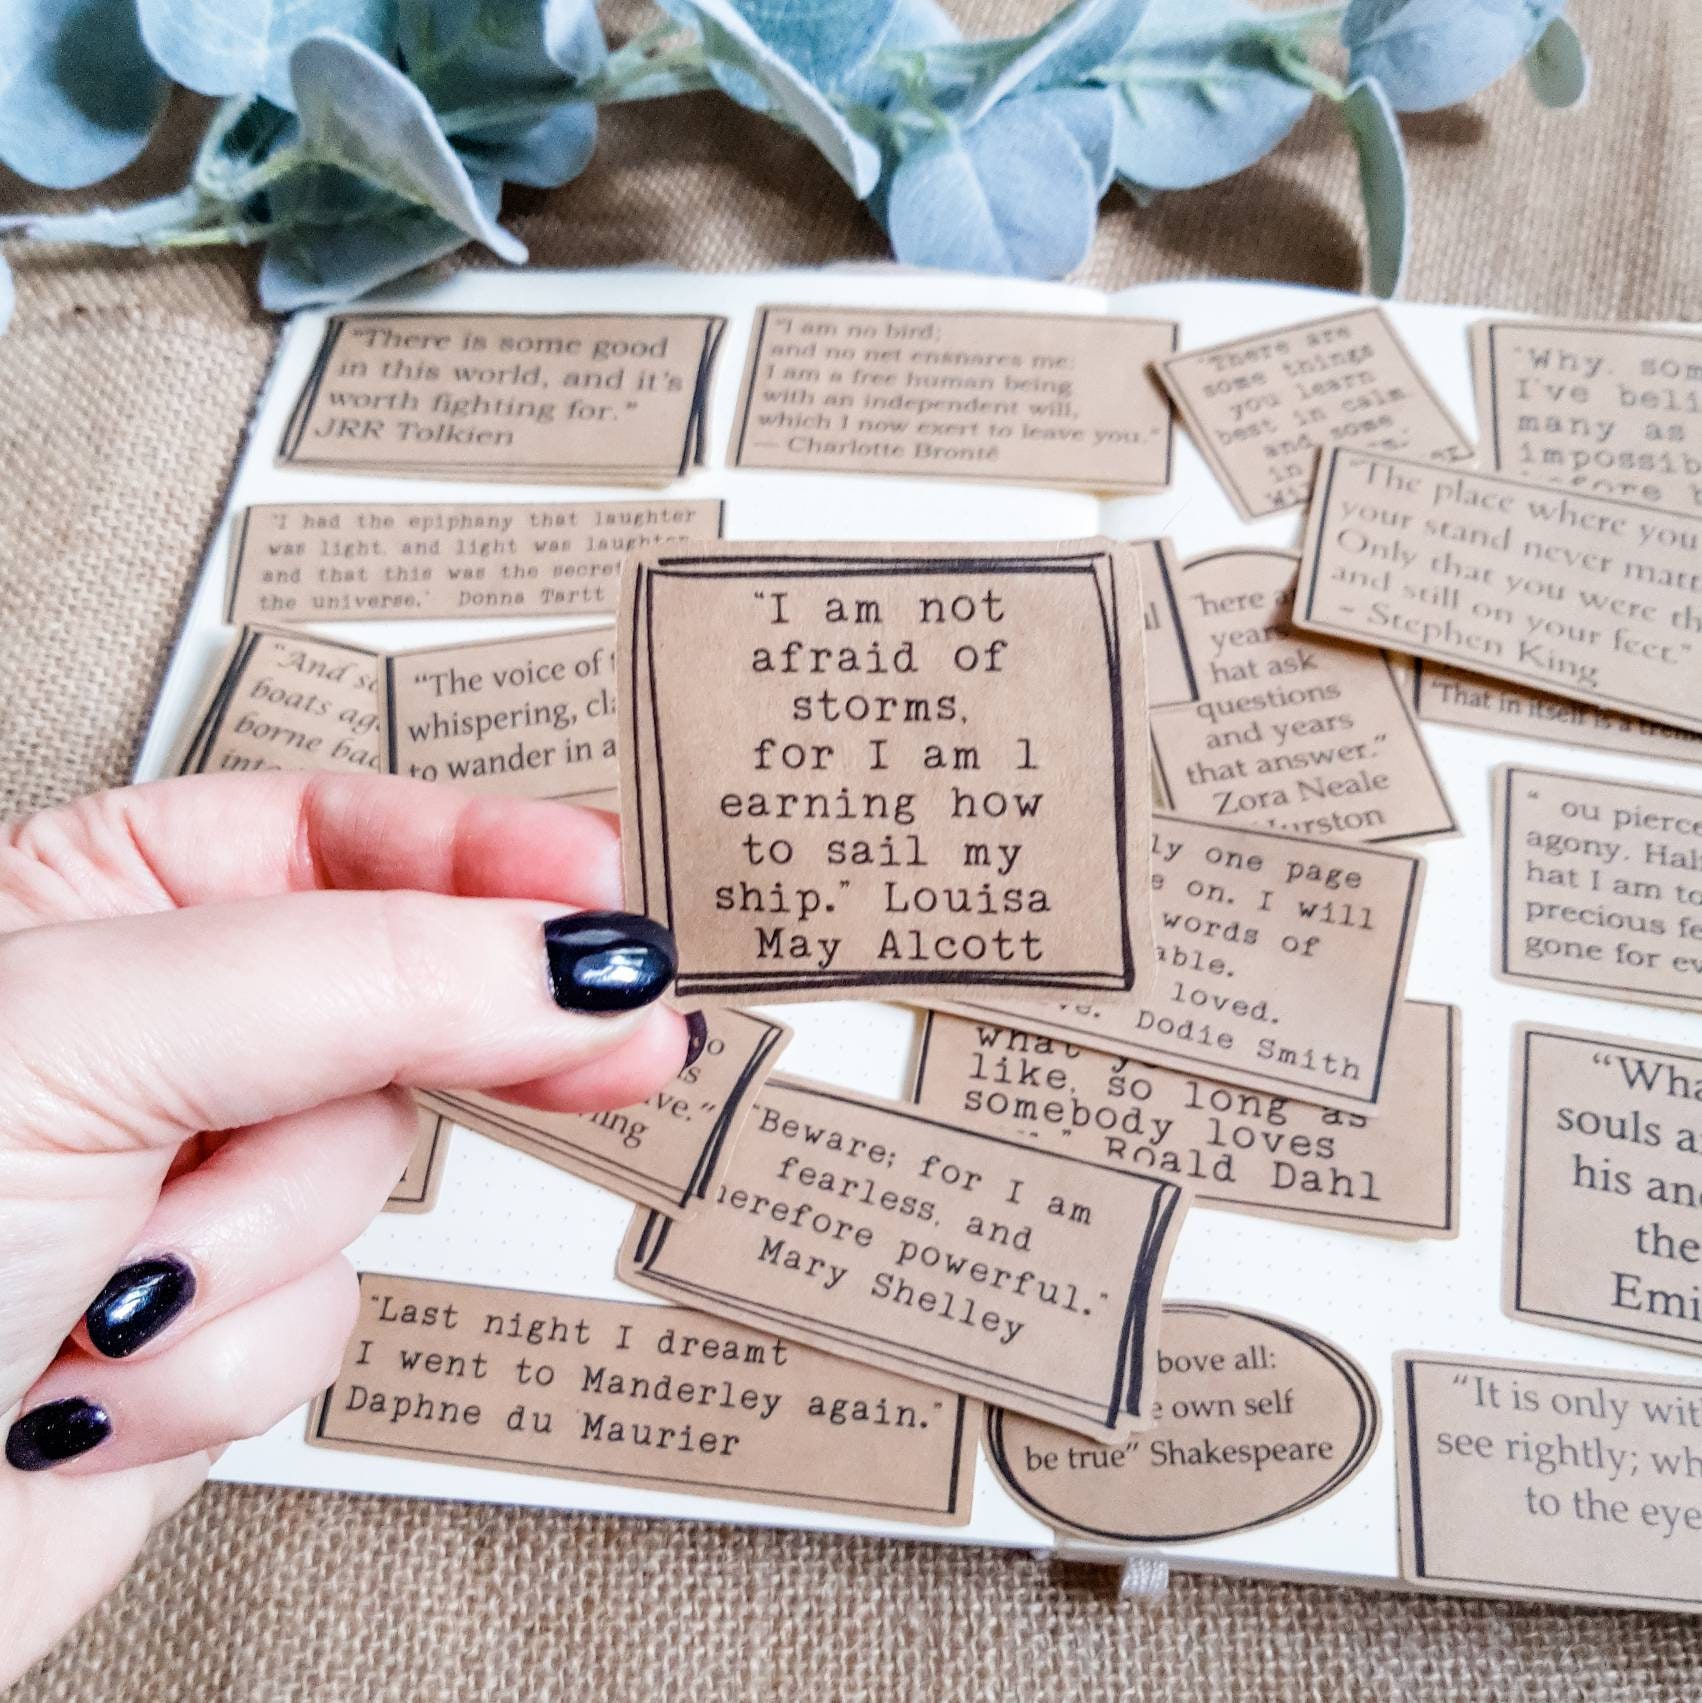 "There is some good
in this world, and it's
worth fighting for."
JRR Tolkien
"I am no bird;
and no net ensnares me:
I am a free human being
with an independent will,
which I now exert to leave you."
— Charlotte Brontë
"There are
some things
you learn
best in calm
and some
in
"Why, som
I've beli
many as
impossib
"The place where you
your stand never matt
Only that you were th
and still on your feet."
- Stephen King
"I had the epiphany that laughter
was light, and light was laughter
and that this was the secret
the universe." Donna Tartt
"And so
boats aga
borne bac
into
"The voice of
whispering, cl
to wander in a
"I am not
afraid of
storms,
for I am l
earning how
to sail my
ship." Louisa
May Alcott
here a
years
hat ask
questions
and years
that answer."
Zora Neale
Hurston
"That in itself is a
" ou pierce
agony. Hal
hat I am to
precious fe
gone for ev
ly one page
e on. I will
words of
able.
loved.
Dodie Smith
what y
like, so long as
somebody loves
Roald Dahl
"Wha
souls a
his an
the
Emi
o
is
ve."
ning
"Beware; for I am
fearless, and
herefore powerful."
Mary Shelley
"Last night I dreamt
I went to Manderley again."
Daphne du Maurier
bove all:
e own self
be true" Shakespeare
"It is only wit
see rightly; wh
to the eye